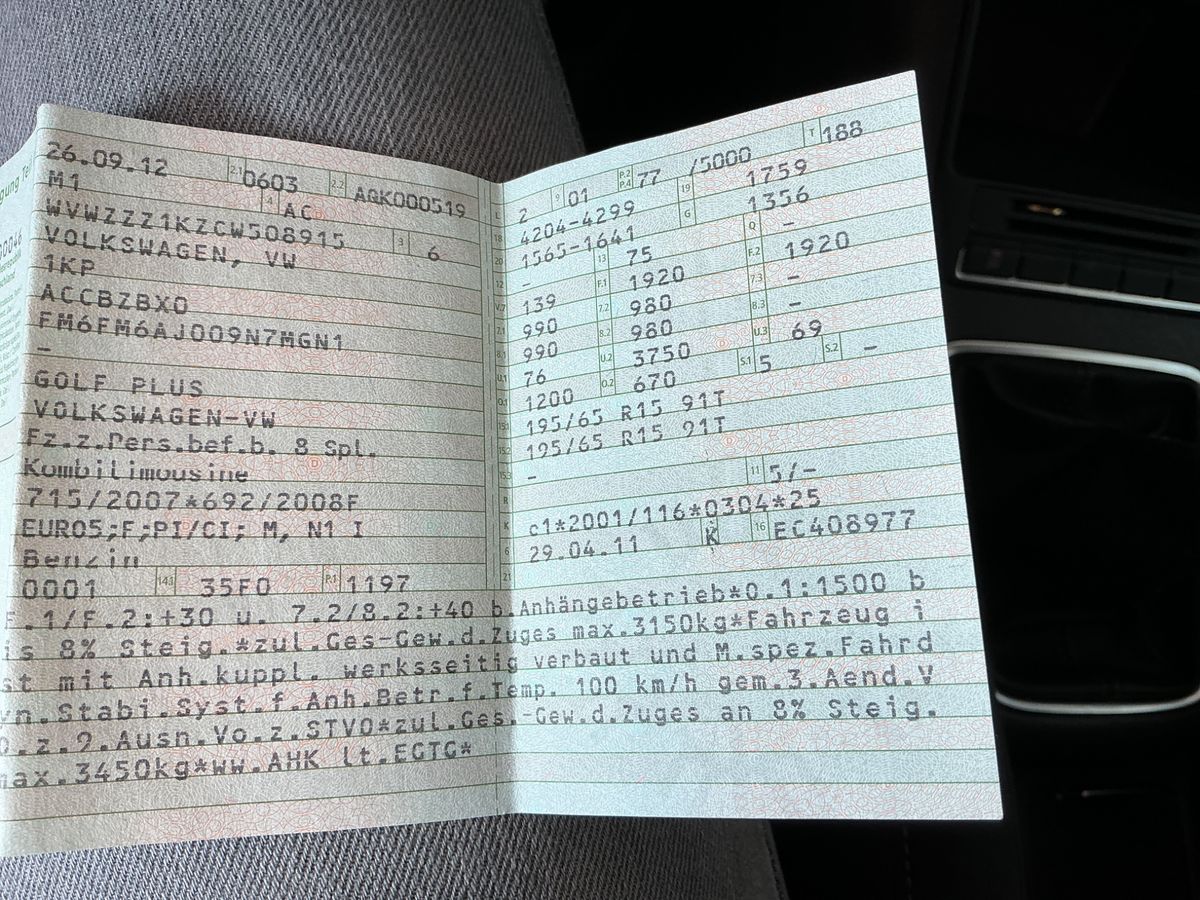 26.09.12 2.1 0603 2.2 AGK000519
M1 4 AC
WVWZZZ1KZCW508915 3 6
VOLKSWAGEN, VW
1KP
ACCBZBX0
FM6FM6AJ009N7MGN1
-
GOLF PLUS
VOLKSWAGEN-VW
Fz.z.Pers.bef.b. 8 Spl.
Kombilimousine
715/2007*692/2008F
EURO5;F;PI/CI; M, N1 I
Benzin
0001 14.1 35F0 P.1 1197
L 2 9 01 P.2 P.4 77 /5000 T 188
18 4204-4299 19 1759
20 1565-1641 G 1356
12 - 13 75 Q -
V.7 139 F.1 1920 F.2 1920
7.1 990 7.2 980 7.3 -
8.1 990 8.2 980 8.3 -
U.1 76 U.2 3750 U.3 69
O.1 1200 O.2 670 S.1 5 S.2 -
15.1 195/65 R15 91T
15.2 195/65 R15 91T
15.3 -
R 11 5/-
K e1*2001/116*0304*25
6 29.04.11 K 16 EC408977
21
F.1/F.2:+30 u. 7.2/8.2:+40 b.Anhängebetrieb*0.1:1500 b
is 8% Steig.*zul.Ges-Gew.d.Zuges max.3150kg*Fahrzeug i
st mit Anh.kuppl. werksseitig verbaut und M.spez.Fahrd
yn.Stabi.Syst.f.Anh.Betr.f.Temp. 100 km/h gem.3.Aend.V
O.z.9.Ausn.Vo.z.STVO*zul.Ges.-Gew.d.Zuges an 8% Steig.
max.3450kg*ww.AHK lt.EGTG*